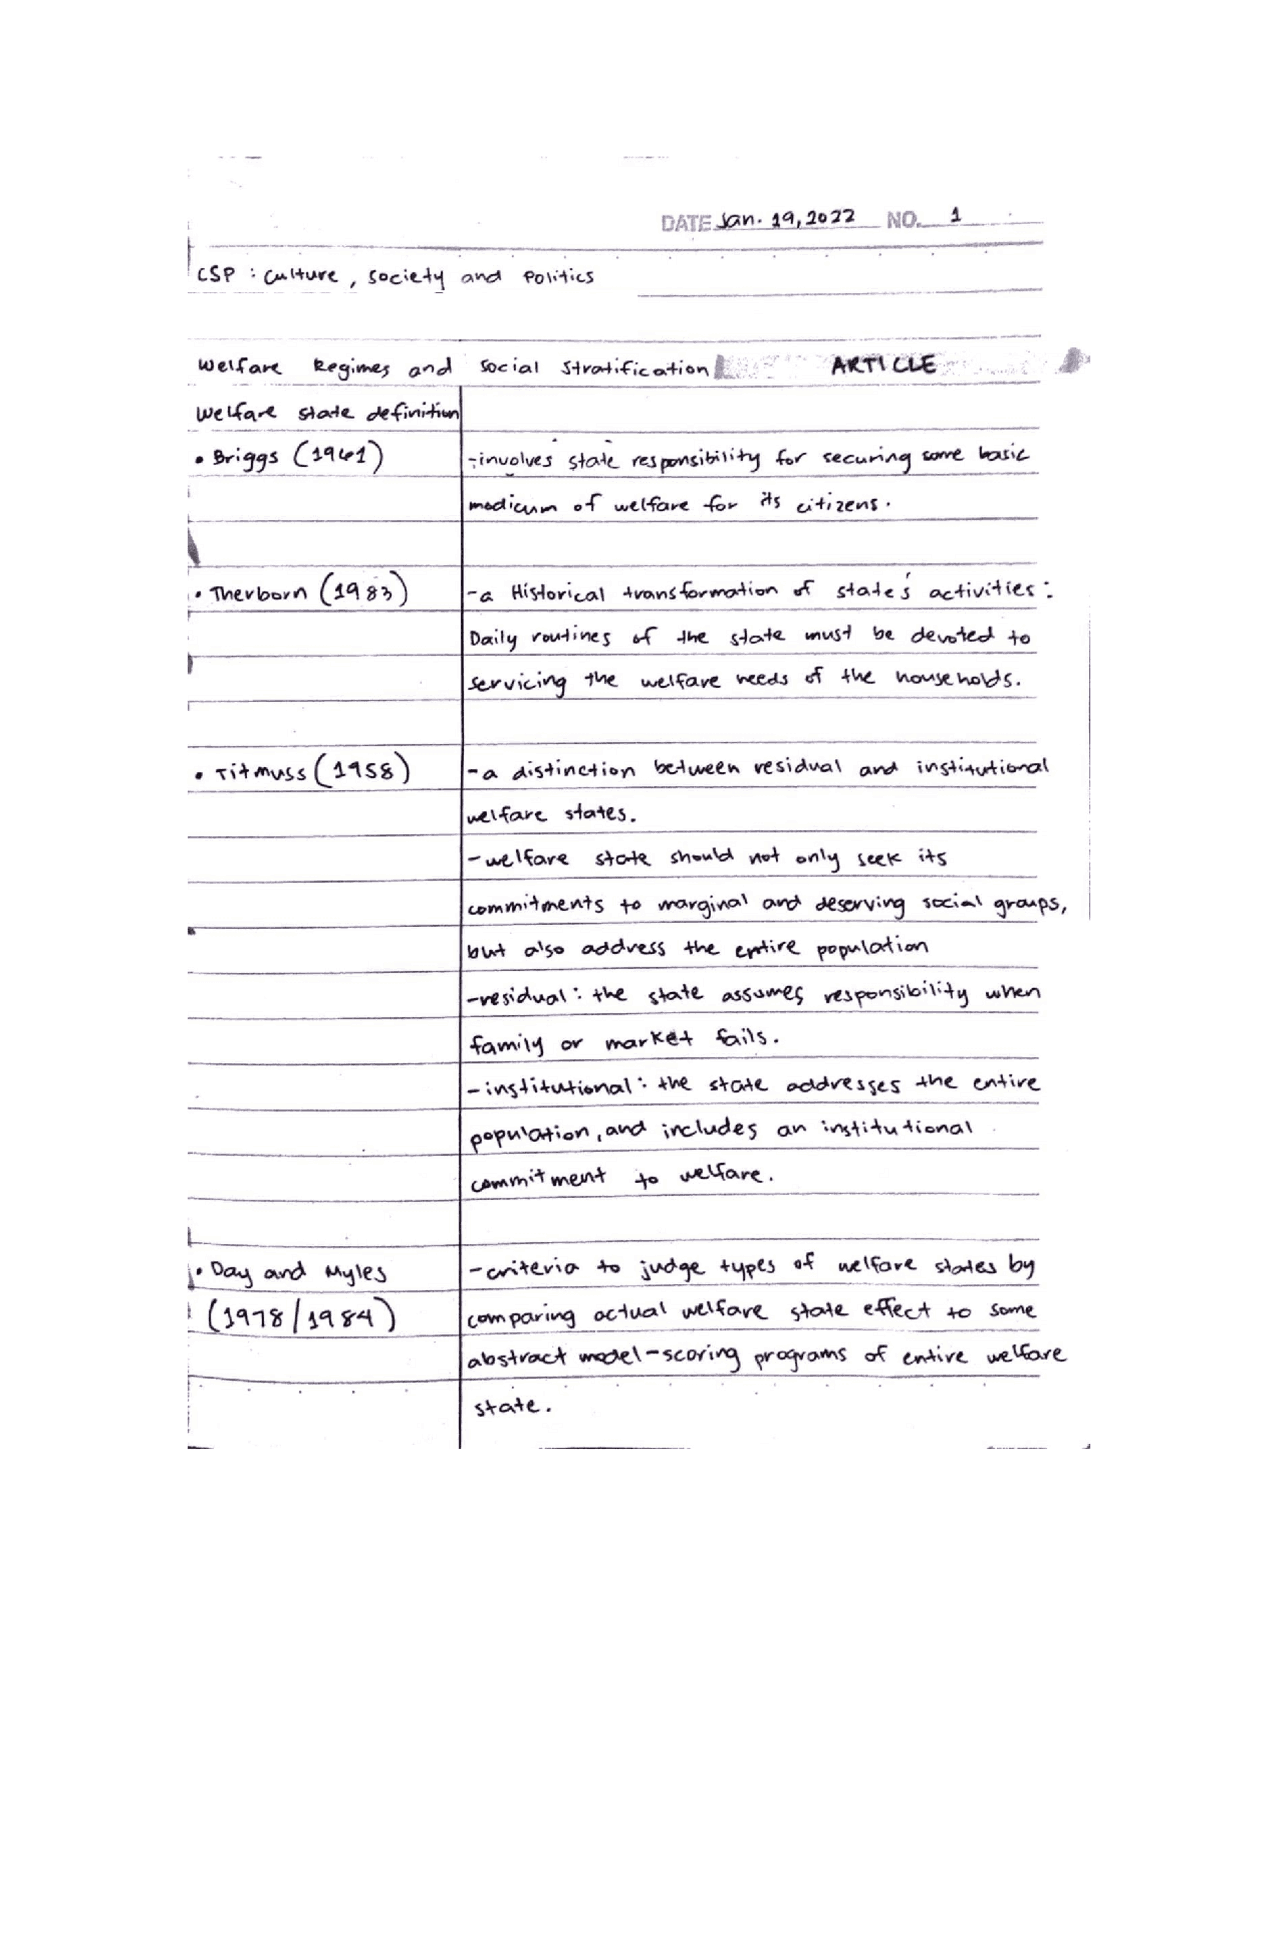 DATE Jan. 19, 2022 NO. 1
CSP : Culture, Society and Politics
Welfare Regimes and Social Stratification ARTICLE
Welfare state definition
• Briggs (1961) -involves state responsibility for securing some basic
modicum of welfare for its citizens.
• Therborn (1983) -a Historical transformation of state's activities:
Daily routines of the state must be devoted to
servicing the welfare needs of the households.
• Titmuss (1958) -a distinction between residual and institutional
welfare states.
-welfare state should not only seek its
commitments to marginal and deserving social groups,
but also address the entire population
-residual: the state assumes responsibility when
family or market fails.
-institutional: the state addresses the entire
population, and includes an institutional
commitment to welfare.
• Day and Myles -criteria to judge types of welfare states by
(1978/1984) comparing actual welfare state effect to some
abstract model-scoring programs of entire welfare
state.